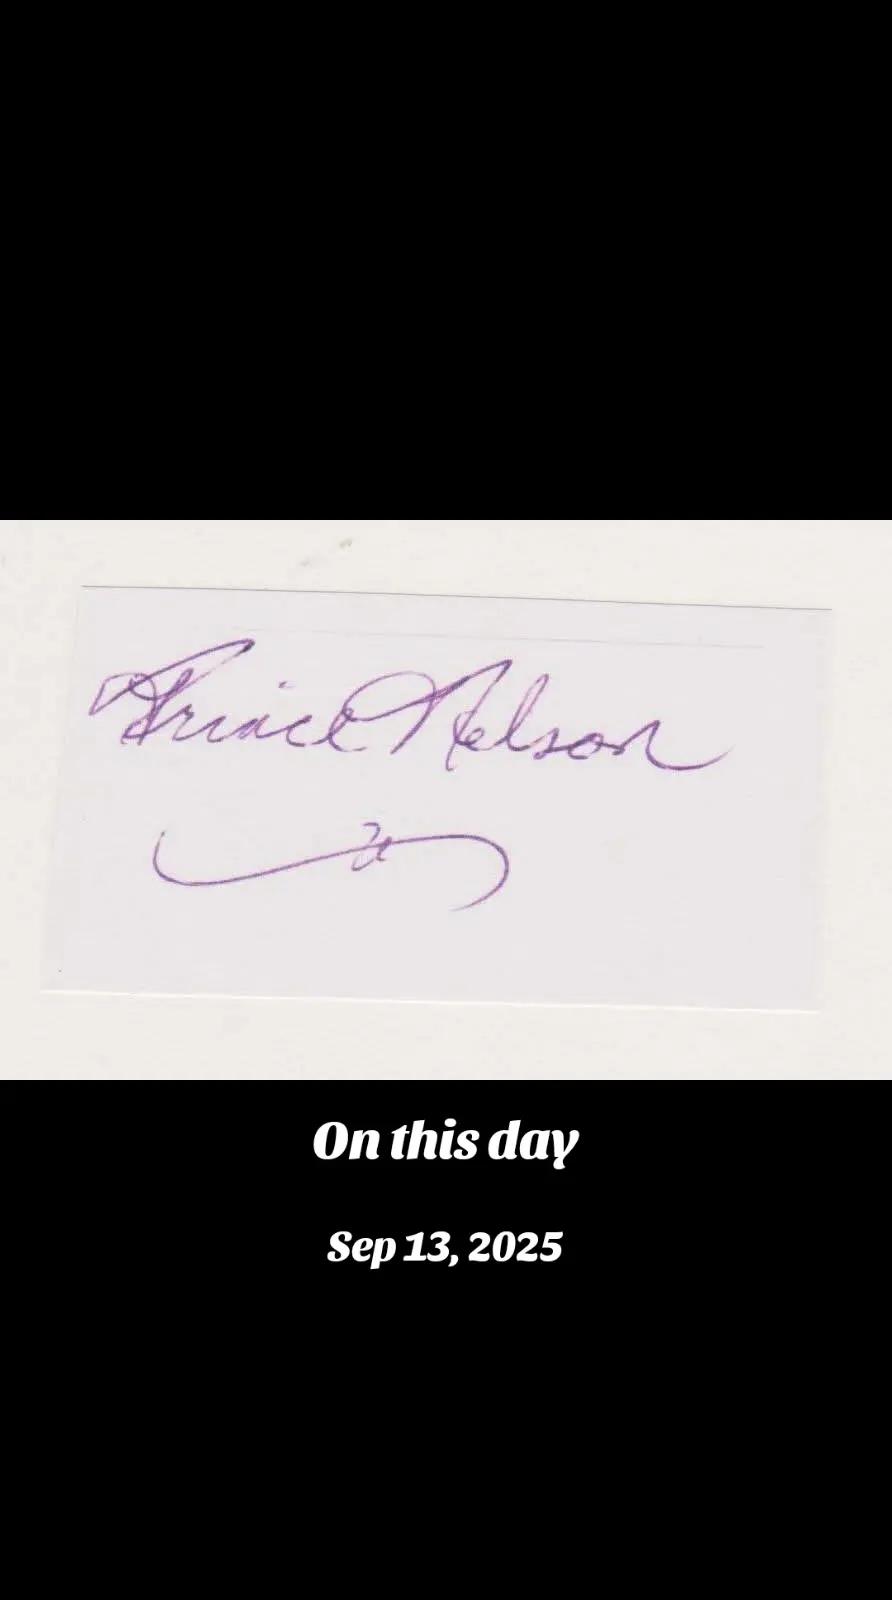 Prince Nelson
On this day
Sep 13, 2025